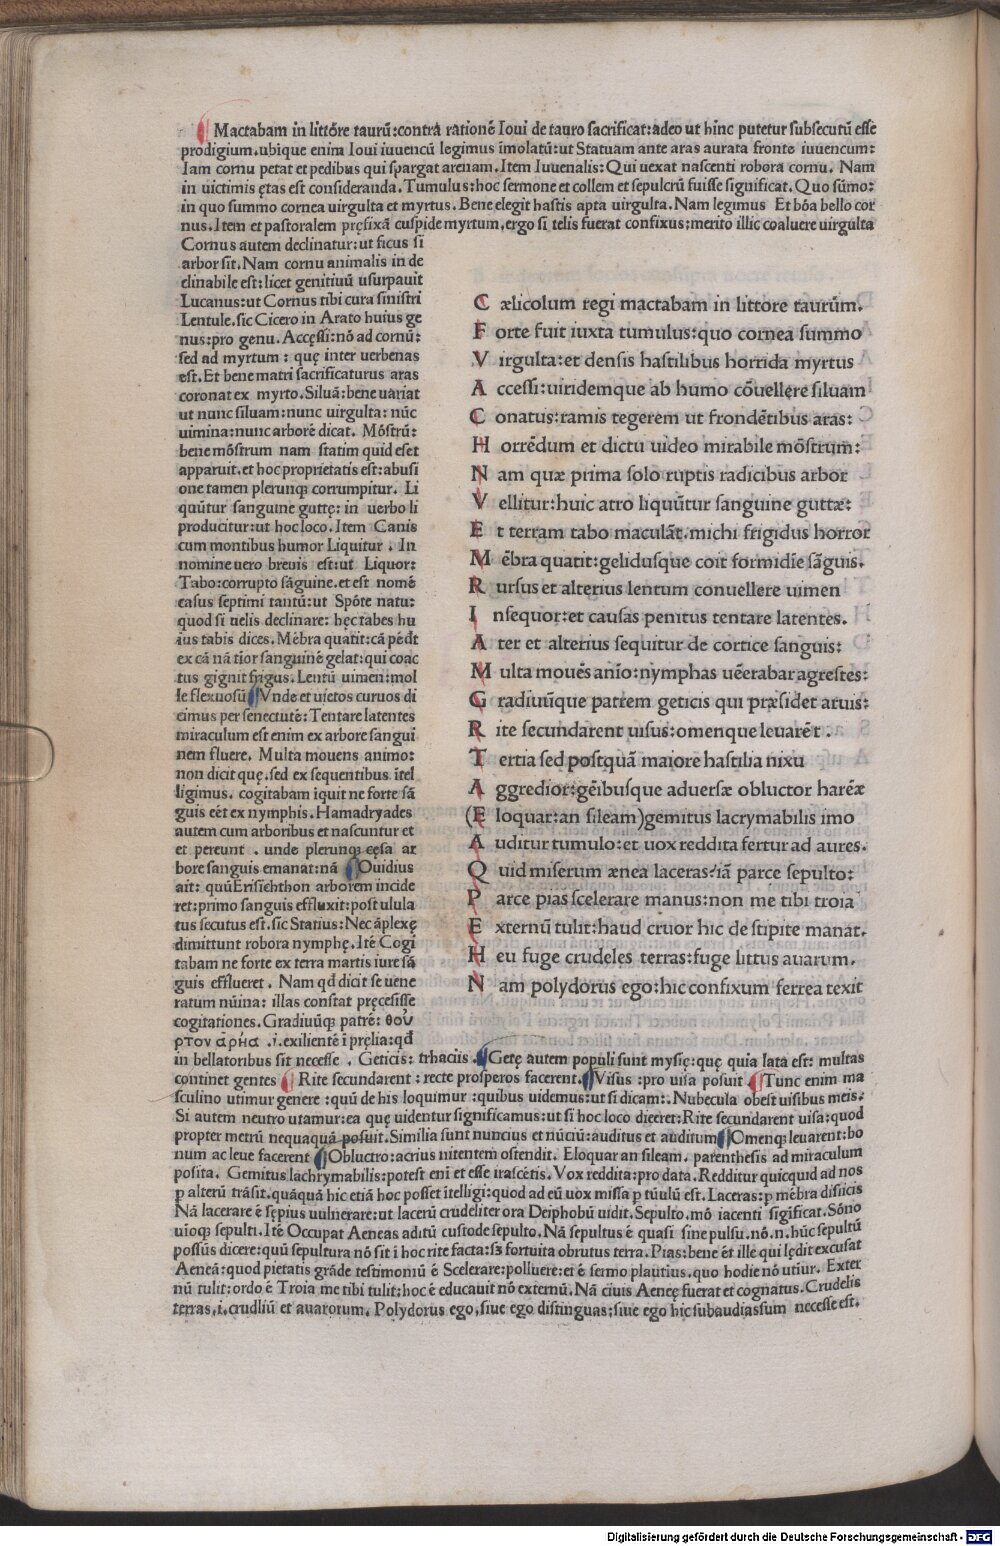 Mactabam in littóre taurū:contra rationē Ioui de tauro sacrificat:adeo ut hinc putetur subsecutū esse
prodigium.ubique enim Ioui iuuencū legimus īmolatū:ut Statuam ante aras aurata fronte iuuencum:
Iam cornu petat et pedibus qui spargat arenam.Item Iuuenalis:Qui uexat nascenti robora cornu. Nam
in uictimis ętas est consideranda.Tumulus:hoc sermone et collem et sepulcrū fuisse significat.Quo sūmo:
in quo summo cornea uirgulta et myrtus.Bene elegit hastis apta uirgulta.Nam legimus Et bōa bello cor
nus.Item et pastoralem pręfixā cuspide myrtum.ergo si telis fuerat confixus:merito illic coaluere uirgulta
Cornus autem declinatur:ut ficus si
arbor sit.Nam cornu animalis in de
clinabile est:licet genitiuū usurpauit
Lucanus:ut Cornus tibi cura sinistri
Lentule.sic Cicero in Arato huius ge
nus:pro genu. Accęssi:nō ad cornū:
sed ad myrtum : quę inter uerbenas
est.Et bene matri sacrificaturus aras
coronat ex myrto.Siluā:bene uariat
ut nunc siluam:nunc uirgulta: nūc
uimina:nunc arborē dicat. Mōstrū:
bene mōstrum nam statim quid eset
apparuit.et hoc proprietatis est:abusi
one tamen plerunqꝫ corrumpitur. Li
quūtur sanguine guttę: in uerbo li
producitur:ut hoc loco.Item Canis
cum montibus humor Liquitur . In
nomine uero breuis est:ut Liquor:
Tabo:corrupto sāguine.et est nomē
casus septimi tantū:ut Spōte natu:
quod si uelis declinare: hęc tabes hu
ius tabis dices.Mēbra quatit:cā pēdt
ex cā nā tīor sanguinē gelat:qui coac
tus gignit frigus.Lentū uimen:mol
le flexuosū Vnde et uietos curuos di
cimus per senectutē:Tentare latentes
miraculum est enim ex arbore sangui
nem fluere. Multa mouens animo:
non dicit quę.sed ex sequentibus ītel
ligimus. cogitabam īquit ne forte sā
guis eēt ex nymphis.Hamadryades
autem cum arboribus et nascuntur et
et pereunt . unde plerunqꝫ cęsa ar
bore sanguis emanat:nā Ouidius
ait: quū Erisichthon arborem incide
ret:primo sanguis effluxit:post ulula
tus secutus est.sic Statius:Nec āplexę
dimittunt robora nymphę.Itē Cogi
tabam ne forte ex terra martis iure sā
guis efflueret . Nam qd̄ dicit se uene
ratum nūina: illas constat pręcesisse
cogitationes.Gradiuūqꝫ patrē: θου
ρτον αρηα .i.exilientē ī pręlia:qd̄
in bellatoribus sit necesse . Geticis: trhaciis . Getę autem populi sunt mysię:quę quia lata est: multas
continet gentes Rite secundarent : recte prosperos facerent. Visus :pro uisa posuit. Tunc enim ma
sculino utimur genere :quū de his loquimur :quibus uidemus:ut si dicam:. Nubecula obest uisibus meis.
Si autem neutro utamur:ea quę uidentur significamus:ut si hoc loco diceret:Rite secundarent uisa:quod
propter metrū nequaquā posuit.Similia sunt nuncius et nūciū:auditus et auditum Omenqꝫ leuarent:bo
num ac leue facerent Obluctro:acrius nitentem ostendit. Eloquar an sileam. parenthesis ad miraculum
posita. Gemitus lachrymabilis:potest enī et esse irascētis. Vox reddita:pro data.Redditur quicquid ad nos
p alterū trāsit.quāquā hic etiā hoc posset ītelligi:quod ad eū uox missa p tūulū est.Laceras:p mēbra disiicis
Nā lacerare ē sępius uulnerare:ut lacerū crudeliter ora Deiphobū uidit.Sepulto.mō iacenti sigificat.Sōno
uīoqꝫ sepulti.Itē Occupat Aeneas aditū custode sepulto. Nā sepultus ē quasi sine pulsu.nō.n.hūc sepultū
possūs dicere:quū sepultura nō sit ī hoc rite facta:sꝫ fortuita obrutus terra.Pias:bene ēt ille qui lędit excusat
Aeneā:quod pietatis grāde testimoniū ē Scelerare:polluere:et ē sermo plautius.quo hodie nō utiur. Exter
nū tulit:ordo ē Troia me tibi tulit:hoc ē educauit nō externū.Nā ciuis Aeneę fuerat et cognatus.Crudelis
terras.i.crudliū et auarorum. Polydorus ego,siue ego distinguas:siue ego hic subaudias sum necesse est.
Cælicolum regi mactabam in littore taurūm.
Forte fuit iuxta tumulus:quo cornea summo
Virgulta:et densis hastilibus horrida myrtus
Accessi:uiridemque ab humo cōuellere siluam
Conatus:ramis tegerem ut frondētibus aras:
Horrēdum et dictu uideo mirabile mōstrum:
Nam quæ prima solo ruptis radicibus arbor
Vellitur:huic atro liquūtur sanguine guttæ:
Et terram tabo maculāt.michi frigidus horror
Mēbra quatit:gelidusque coit formidīe sāguis.
Rursus et alterius lentum conuellere uimen
Insequor:et causas penitus tentare latentes.
Ater et alterius sequitur de cortice sanguis:
Multa mouēs anīo:nymphas uēerabar agrestes:
Gradiuūque patrem geticis qui præsidet aruis:
Rite secundarent uisus:omenque leuarēt .
Tertia sed postquā maiore hastilia nixu
Aggredior:gēibusque aduersæ obluctor harēæ
(Eloquar:an sileam)gemitus lacrymabilis imo
Auditur tumulo:et uox reddita fertur ad aures.
Quid miserum ænea laceras?iā parce sepulto:
Parce pias scelerare manus:non me tibi troia
Externū tulit:haud cruor hic de stipite manat.
Heu fuge crudeles terras:fuge littus auarum.
Nam polydorus ego:hic confixum ferrea texit
Digitalisierung gefördert durch die Deutsche Forschungsgemeinschaft - DFG